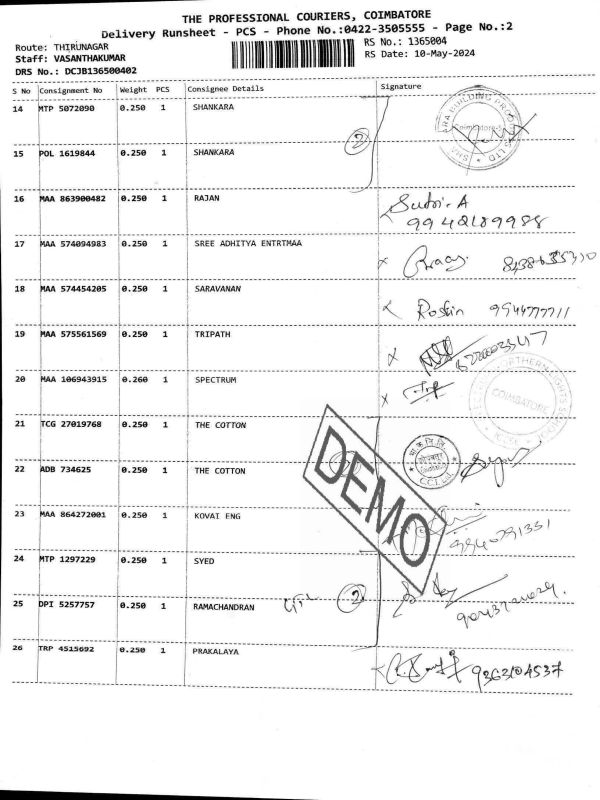 THE PROFESSIONAL COURIERS, COIMBATORE
Delivery Runsheet - PCS - Phone No.:0422-3505555 - Page No.:2
Route: THIRUNAGAR
RS No.: 1365004
Staff: VASANTHAKUMAR
RS Date: 10-May-2024
DRS No.: DCJB136500402
S No Consignment No Weight PCS Consignee Details Signature
14 MTP 5072090 0.250 1 SHANKARA
2
15 POL 1619844 0.250 1 SHANKARA
16 MAA 863900482 0.250 1 RAJAN
17 MAA 574094983 0.250 1 SREE ADHITYA ENTRTMAA
18 MAA 574454205 0.250 1 SARAVANAN
19 MAA 575561569 0.250 1 TRIPATH
20 MAA 106943915 0.260 1 SPECTRUM
COIMBATORE
21 TCG 27019768 0.250 1 THE COTTON
22 ADB 734625 0.250 1 THE COTTON
DEMO
23 MAA 864272001 0.250 1 KOVAI ENG
24 MTP 1297229 0.250 1 SYED
25 DPI 5257757 0.250 1 RAMACHANDRAN 2
26 TRP 4515692 0.250 1 PRAKALAYA 9363104537